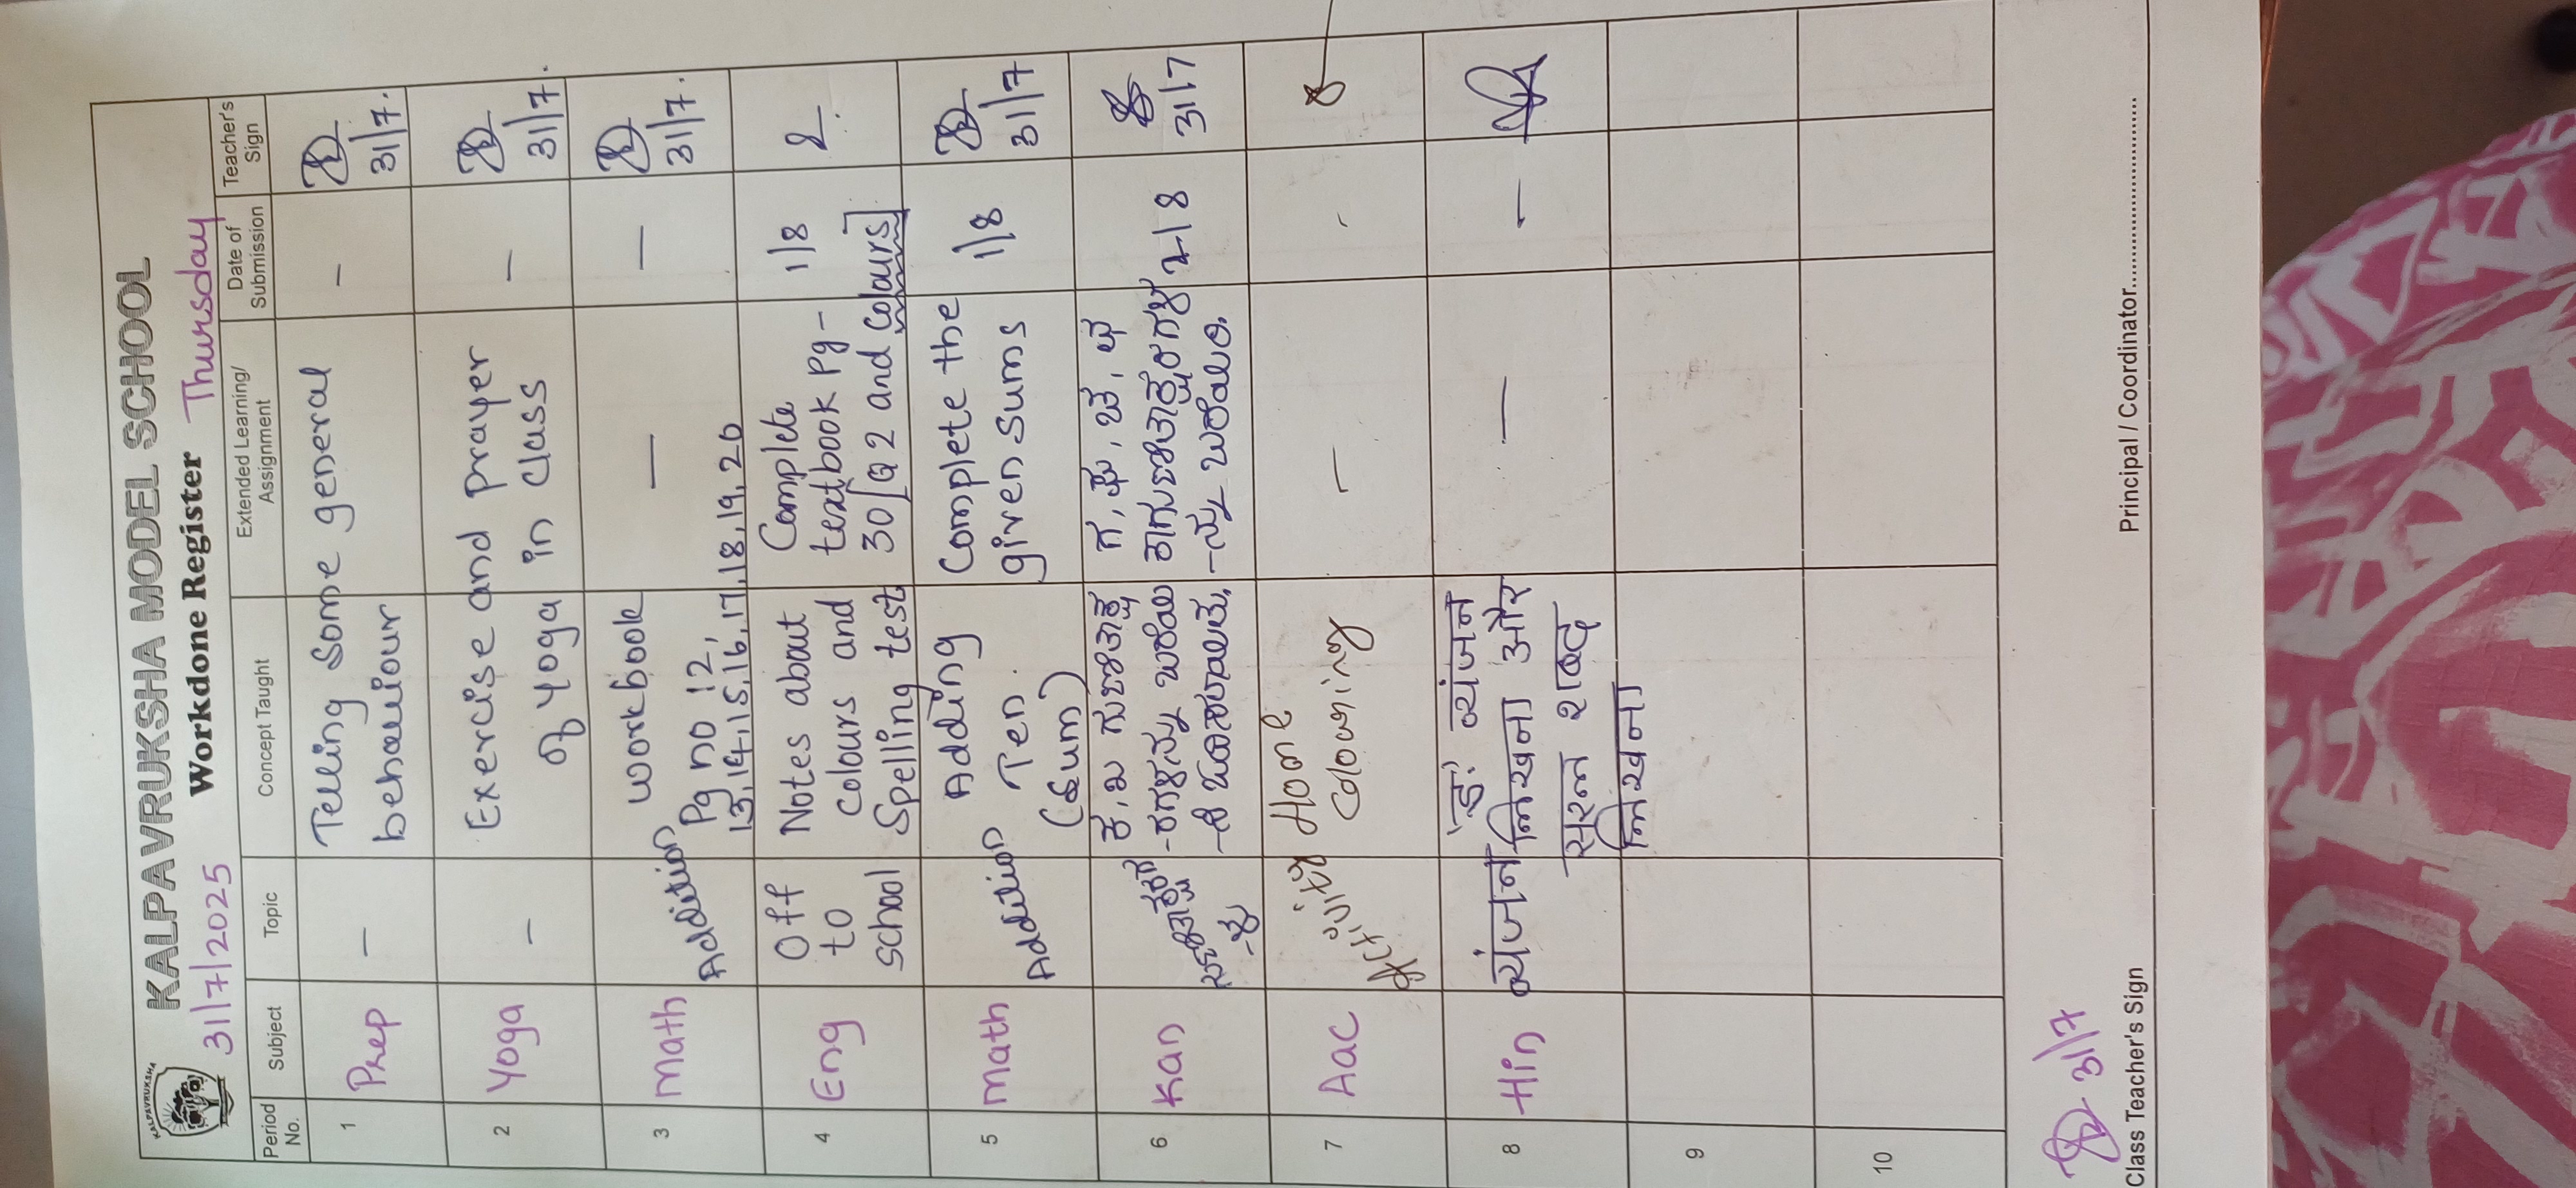 KALPAVRUKSHA
KALPAVRUKSHA MODEL SCHOOL
31/7/2025 Workdone Register Thursday
Period No. Subject Topic Concept Taught Extended Learning/ Assignment Date of Submission Teacher's Sign
1 Prep - Telling some general - 31/7.
behaviour
2 Yoga - Exercise and prayer - 31/7.
of yoga in class
3 Math Addition workbook — — 31/7.
Pg no 12,
13,14,15,16,17,18,19,20
4 Eng Off Notes about Complete 1/8
to colours and textbook Pg-
school Spelling test 30[Q2 and colours]
5 Math Addition Adding Complete the 1/8 31/7
Ten. given sums
(Sum)
6 Kan ಗ, ಘ, ಚ, ಛ 2/8 31/7
ಕಾಗುಣಿತಾಕ್ಷರಗಳ
-ನ್ನು ಬರೆಯಿರಿ.
7 Aac Home - -
Colouring
8 Hin व्यंजन 'ड़' व्यंजन — -
लिखना और
सरल शब्द
लिखना
9
10
31/7
Class Teacher's Sign Principal / Coordinator